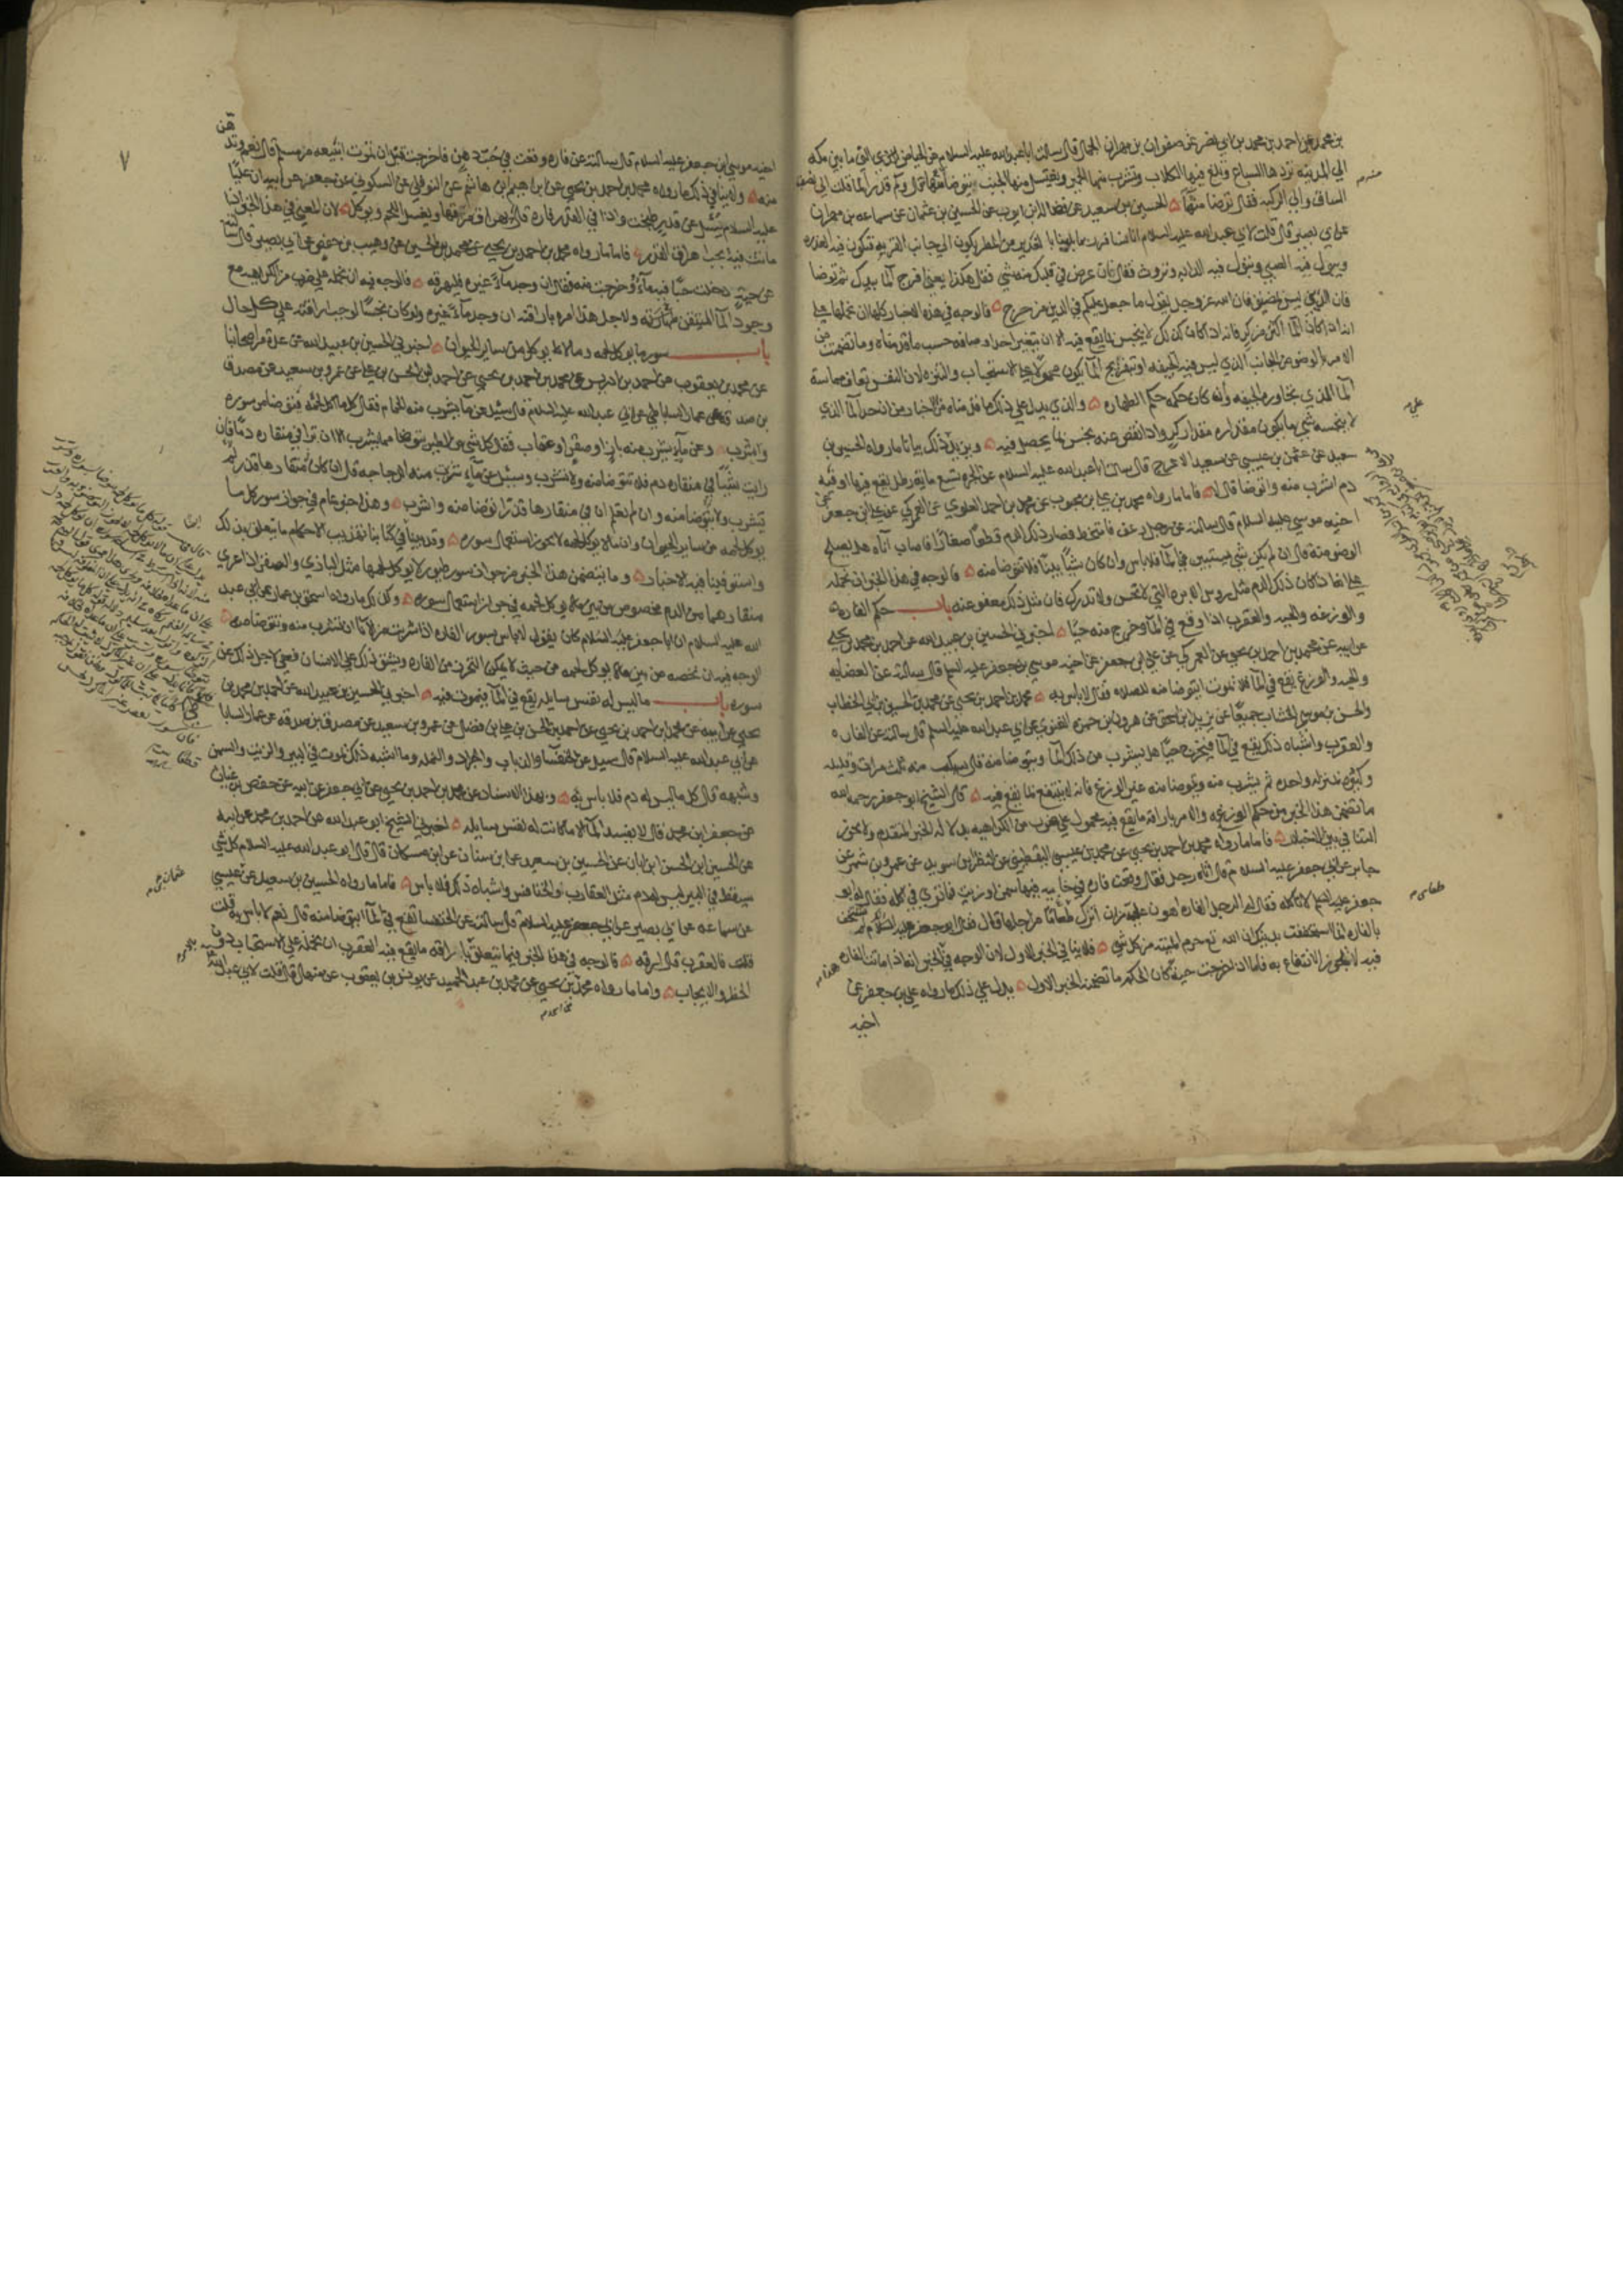 بن محمد عن احمد بن محمد بن ابي نصر عن صفوان بن مهران الجمال قال سالت ابا عبد الله عليه السلام عن الحياض التي ما بين مكه
الي المدينه تردها السباع وتلغ فيها الكلاب وتشرب منها الحمير ويغتسل منها الجنب ايتوضا منها قال وكم قدر الما قلت الي نصف
الساق والي الركبه فقال توضا منه الحسين بن سعيد عن فضاله بن ايوب عن الحسين بن عثمان عن سماعه بن مهران
عن ابي بصير قال قلت لابي عبد الله عليه السلام انا نسافر فربما بلينا بالغدير من المطر يكون الي جانب القريه فتكون فيه العذره
ويبول فيه الصبي وتبول فيه الدابه وتروث فقال ان عرض في قلبك منه شي فقل هكذا يعني افرج الما بيدك ثم توضا
فان الدين ليس بمضيق فان الله عز وجل يقول ما جعل عليكم في الدين من حرج فالوجه في هذه الاخبار كلها ان نحملها علي
انه اذا كان الما اكثر من كر فانه اذا كان كذلك لا ينجس بما يقع فيه الا ان يتغير احد اوصافه حسب ما قدمناه وما تضمنت من
الامر بالوضو من الجانب الذي ليس فيه الجيفه او بتفريج الما يكون محمولا علي الاستحباب والتنزه لان النفس تعاف مماسة
الما الذي تجاوره الجيفه وان كان حكمه حكم الطهاره والذي يدل علي ذلك ما قدمناه من الاخبار من ان حد الما الذي
لا ينجسه شي ما يكون مقداره مقدار كر واذا نقص عنه نجس بما يحصل فيه ويزيد ذلك بيانا ما رواه الحسين بن
سعيد عن عثمن بن عيسي عن سعيد الاعرج قال سالت ابا عبد الله عليه السلام عن الجره تسع مايه رطل يقع فيها اوقيه
دم اشرب منه واتوضا قال لا فاما ما رواه محمد بن علي بن محبوب عن محمد بن احمد العلوي عن العمركي عن علي بن جعفر عن
اخيه موسي عليه السلام قال سالته عن رجل رعف فامتخط فصار ذلك الدم قطعا صغارا فاصاب اناه هل يصلح
الوضو منه قال ان لم يكن شي يستبين في الما فلا باس وان كان شيا بينا فلا يتوضا منه فالوجه في هذا الخبر ان نحمله
علي انه اذا كان ذلك الدم مثل روس الابر التي لا تحس ولا تدرك فان مثل ذلك معفو عنه باب حكم الفاره
والوزغه والحيه والعقرب اذا وقع في الما وخرج منه حيا اخبرني الحسين بن عبيد الله عن احمد بن محمد بن يحيي
عن ابيه عن محمد بن احمد بن يحيي عن العمركي عن علي بن جعفر عن اخيه موسي بن جعفر عليه السلم قال سالته عن العظايه
والحيه والوزغ يقع في الما فلا تموت ايتوضا منه للصلاه فقال لا باس به محمد بن احمد بن يحيي عن محمد بن الحسين بن ابي الخطاب
والحسن بن موسي الخشاب جميعا عن يزيد بن اسحق عن هرون بن حمزه الغنوي عن ابي عبد الله عليه السلم قال سالته عن الفاره
والعقرب واشباه ذلك يقع في الما فيخرج حيا هل يشرب من ذلك الما ويتوضا منه قال يسكب منه ثلث مرات وقليله
وكثيره بمنزله واحده ثم يشرب منه ويتوضا منه غير الوزغ فانه لا ينتفع بما يقع فيه قال الشيخ ابو جعفر رحمه الله
ما تضمن هذا الخبر من حكم الوزغه والامر باراقه ما يقع فيه محمول علي ضرب من الكراهيه بدلاله الخبر المتقدم ولا يجوز
التنافي بين الاخبار فاما ما رواه محمد بن احمد بن يحيي عن محمد بن عيسي اليقطيني عن النضر بن سويد عن عمرو بن شمر عن
جابر عن ابي جعفر عليه السلام قال اتاه رجل فقال وقعت فاره في خابيه فيها سمن او زيت فما تري في اكله فقال له ابو
جعفر عليه السلم لا تاكله فقال له الرجل الفاره اهون علي من ان اترك طعامي من اجلها قال فقال ابو جعفر عليه السلام انك لم تستخف
بالفاره انما استخففت بدينك ان الله تع حرم الميته من كل شي فلا ينافي الخبر الاول لان الوجه في الخبر انه اذا ماتت الفاره
فيه لا يجوز الانتفاع به فاما اذا خرجت حيه كان الحكم ما تضمنه الخبر الاول يدل علي ذلك ما رواه علي بن جعفر عن
اخيه
٧
اخيه موسي بن جعفر عليه السلام قال سالته عن فاره وقعت في حب دهن فاخرجت قبل ان تموت ابيعه من مسلم قال نعم وتدهن
منه ولا ينافي ذلك ما رواه محمد بن احمد بن يحيي عن ابراهيم بن هاشم عن النوفلي عن السكوني عن جعفر عن ابيه ان عليا
عليه السلام سئل عن قدر طبخت واذا في القدر فاره قال يهراق مرقها ويغسل اللحم ويوكل لان المعني في هذا الخبر انها
ماتت فيه يجب اهراق القدر فاما ما رواه محمد بن احمد بن يحيي عن محمد بن الحسين عن وهيب بن حفص عن ابي بصير قال سالته
عن حيه دخلت حبا فيه ماء وخرجت منه فقال ان وجد ماء غيره فليهرقه فالوجه فيه ان نحمله علي ضرب من الكراهيه مع
وجود الما المتيقن طهارته ولاجل هذا امره باراقته ان وجد ماء غيره ولو كان نجسا لوجب اراقته علي كل حال
باب سور ما يوكل لحمه وما لا يوكل من ساير الحيوان اخبرني الحسين بن عبيد الله عن عدة من اصحابنا
عن محمد بن يعقوب عن احمد بن ادريس عن محمد بن احمد بن يحيي عن احمد بن الحسن بن علي عن عمرو بن سعيد عن مصدق
بن صدقه عن عمار الساباطي عن ابي عبد الله عليه السلام قال سئل عن ماء يشرب منه الحمام فقال كل ما اكل لحمه يتوضا من سوره
واشرب وعن ماء يشرب منه باز او صقر او عقاب فقال كل شي من الطير يتوضا مما يشرب الا ان تري في منقاره دما فان
رايت شيئا في منقاره دم فلا تتوضا منه ولا تشرب وسئل عن ماء شربت منه الدجاجه قال ان كان في منقارها قذر لم
يشرب ولا يتوضا منه وان لم تعلم ان في منقارها قذرا توضا منه واشرب وهذا خبر عام في جواز سور كل ما
يوكل لحمه من ساير الحيوان وان ما لا يوكل لحمه لا يجوز استعمال سوره وقد بينا في كتابنا تهذيب الاحكام ما يتعلق بذلك
واستوفينا فيه الاخبار وما يتضمن هذا الخبر من جواز سور طيور لا يوكل لحمها مثل البازي والصقر اذا عري
منقارهما من الدم مخصوص من بين ما لا يوكل لحمه في جواز استعمال سوره وكذلك ما رواه اسحق بن عمار عن ابي عبد
الله عليه السلام ان ابا جعفر عليه السلام كان يقول لا باس بسور الفاره اذا شربت من الاناء ان تشرب منه وتتوضا منه
الوجه فيه ان نخصه من بين ما لا يوكل لحمه من حيث لا يمكن التحرز من الفاره ويشق ذلك علي الانسان فعفي لاجل ذلك عن
سوره باب ما ليس له نفس سايله يقع في الما فيموت فيه اخبرني الحسين بن عبيد الله عن احمد بن محمد بن
يحيي عن ابيه عن محمد بن احمد بن يحيي عن احمد بن الحسن بن علي بن فضال عن عمرو بن سعيد عن مصدق بن صدقه عن عمار السابا
عن ابي عبد الله عليه السلام قال سيل عن الخنفسا والذباب والجراد والنمله وما اشبه ذلك تموت في البير والزيت والسمن
وشبهه قال كل ما ليس له دم فلا باس به وبهذا الاسناد عن محمد بن احمد بن يحيي عن ابي جعفر عن ابيه عن حفص بن غياث
عن جعفر بن محمد قال لا يفسد الما الا ما كانت له نفس سايله اخبرني الشيخ ابو عبد الله عن احمد بن محمد عن ابيه
عن الحسين بن الحسن بن ابان عن الحسين بن سعيد عن ابن سنان عن ابن مسكان قال قال ابو عبد الله عليه السلام كل شي
سيقط في البير ليس له دم مثل العقارب والخنافس واشباه ذلك فلا باس فاما ما رواه الحسين بن سعيد عن عثمان بن عيسي
عن سماعه عن ابي بصير عن ابي جعفر عليه السلام قال سالته عن الخنفسا تقع في الما ايتوضا منه قال نعم لا باس به قلت
فالعقرب قال ارقه فالوجه في هذا الخبر فيما يتعلق باراقه ما يقع فيه العقرب ان نحمله علي الاستحباب دون
الحظر والايجاب واما ما رواه محمد بن يحيي عن محمد بن عبد الحميد عن يونس بن يعقوب عن منهال قال قلت لابي عبد الله